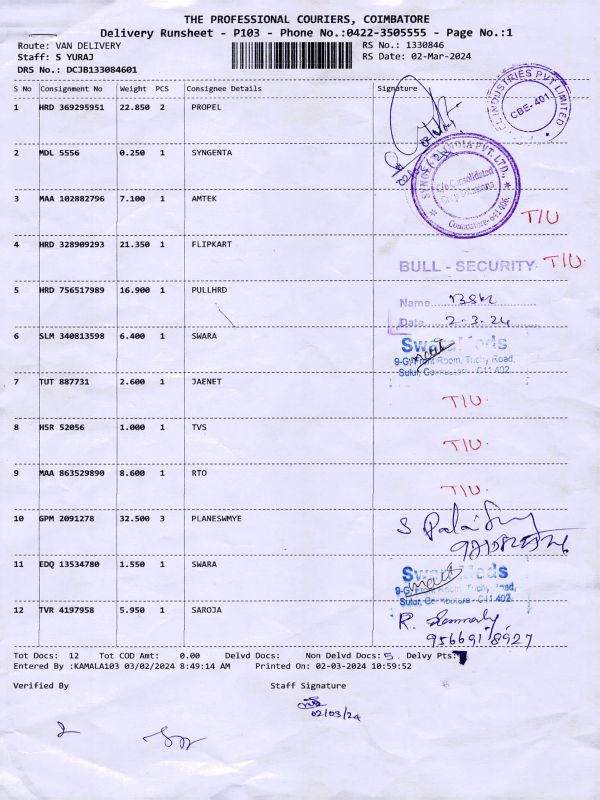 THE PROFESSIONAL COURIERS, COIMBATORE
Delivery Runsheet - P103 - Phone No.:0422-3505555 - Page No.:1
Route: VAN DELIVERY RS No.: 1330846
Staff: S YURAJ RS Date: 02-Mar-2024
DRS No.: DCJB133084601
S No Consignment No Weight PCS Consignee Details Signature
1 HRD 369295951 22.850 2 PROPEL
INDUSTRIES PVT LIMITED
CBE-401
2 MDL 5556 0.250 1 SYNGENTA
INDIA PVT. LTD.,
C/o Consolidated
Coimbatore-641406.
3 MAA 102882796 7.100 1 AMTEK T/U
4 HRD 328909293 21.350 1 FLIPKART T/U.
BULL - SECURITY
5 HRD 756517989 16.900 1 PULLHRD
Name
Date 2-3-24
6 SLM 340813598 6.400 1 SWARA
9-G, Front Room, Trichy Road,
Sulur, Coimbatore - 641 402.
7 TUT 887731 2.600 1 JAENET T/U.
8 HSR 52056 1.000 1 TVS T/U.
9 MAA 863529890 8.600 1 RTO T/U.
10 GPM 2091278 32.500 3 PLANESWMYE
11 EDQ 13534780 1.550 1 SWARA
9-G, Front Room, Trichy Road,
Sulur, Coimbatore - 641 402.
12 TVR 4197958 5.950 1 SAROJA R.
9566918927
Tot Docs: 12 Tot COD Amt: 0.00 Delvd Docs: Non Delvd Docs: 5 Delvy Pts:
Entered By :KAMALA103 03/02/2024 8:49:14 AM Printed On: 02-03-2024 10:59:52
Verified By Staff Signature
02/03/24